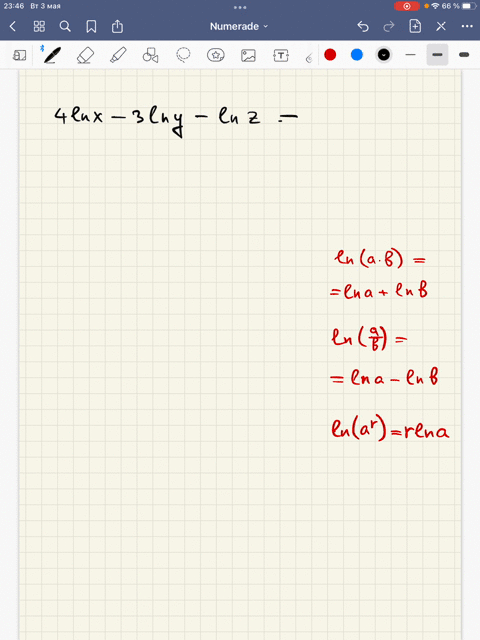 23:46 Вт 3 мая 66 %
Numerade
T
4lnx − 3lny − lnz −
ln(a·b) =
= lna + lnb
ln(a/b) =
= lna − lnb
ln(a^r) = rlna